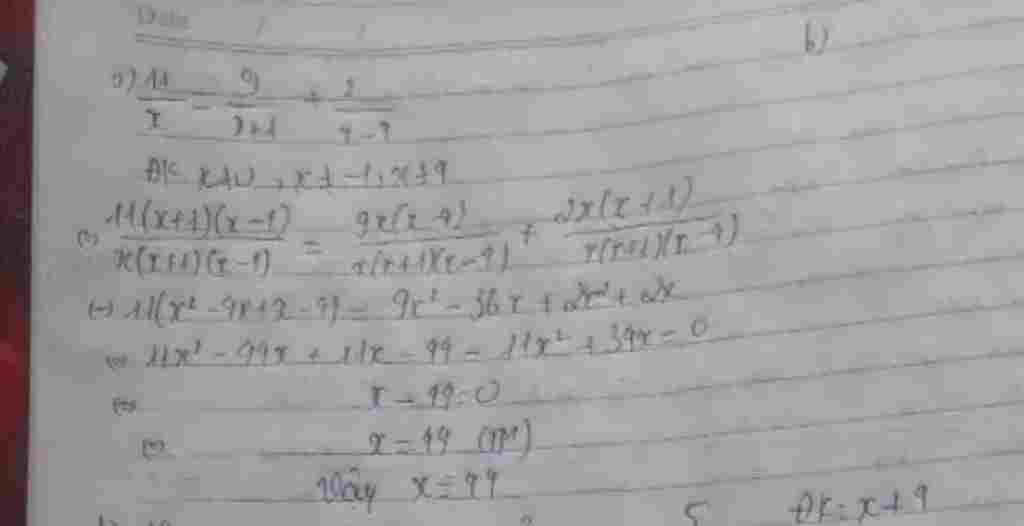 Date / /
b)
a) 11/x = 9/(x+1) + 2/(x-4)
ĐK x≠0, x≠-1, x≠4
(=) 11(x+1)(x-4)/x(x+1)(x-4) = 9x(x-4)/x(x+1)(x-4) + 2x(x+1)/x(x+1)(x-4)
(=) 11(x² - 4x + x - 4) = 9x² - 36x + 2x² + 2x
(=) 11x² - 44x + 11x - 44 - 11x² + 34x = 0
(=) x - 44 = 0
(=) x = 44 (TM)
Vậy x = 44
5 ĐK: x ≠